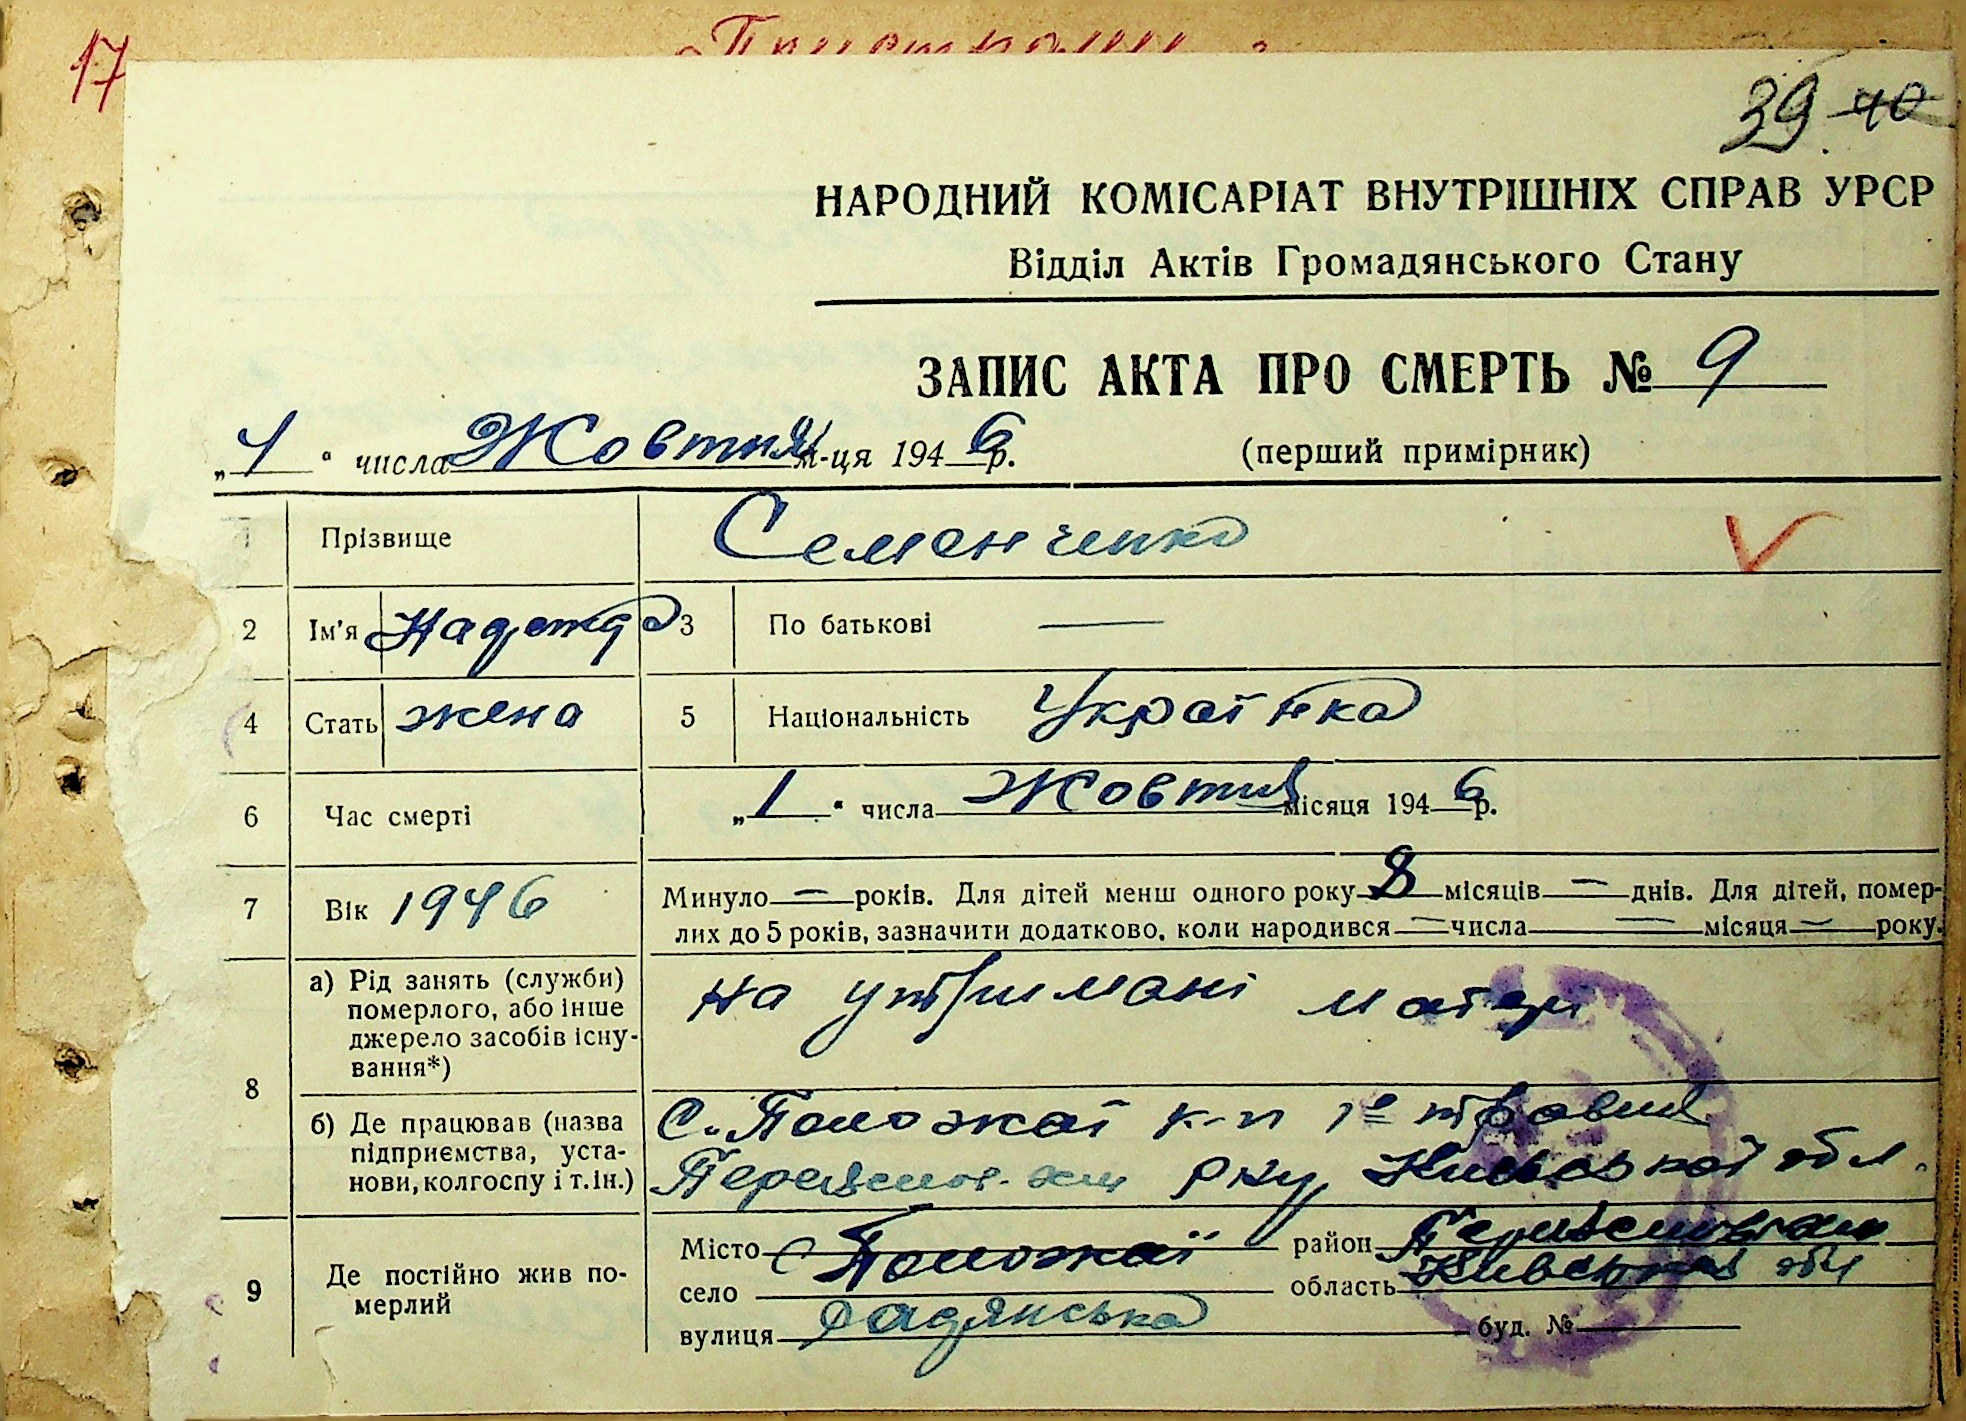 17
39 40
НАРОДНИЙ КОМІСАРІАТ ВНУТРІШНІХ СПРАВ УРСР
Відділ Актів Громадянського Стану
ЗАПИС АКТА ПРО СМЕРТЬ № 9
„1“ числа Жовтня м-ця 1946 р. (перший примірник)
1 Прізвище Семенченко
2 Ім'я Надежда 3 По батькові —
4 Стать жена 5 Національність Українка
6 Час смерті „1“ числа Жовтня місяця 1946 р.
7 Вік 1946 Минуло — років. Для дітей менш одного року 8 місяців — днів. Для дітей, помер-
лих до 5 років, зазначити додатково, коли народився — числа — місяця — року.
8 а) Рід занять (служби)
померлого, або інше
джерело засобів існу-
вання*)
на утримані матері
б) Де працював (назва
підприємства, уста-
нови, колгоспу і т. ін.)
С. Положаї к-п 1º травня
р-ну Київської обл.
9 Де постійно жив по-
мерлий
Місто С Положаї район
село область Київська обл
вулиця Радянська буд. №